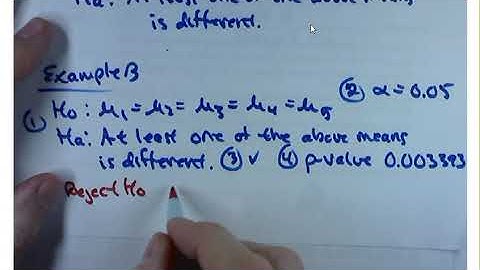 Ha: At least one of the above means
is different.
Example B
② α = 0.05
① Ho: μ₁ = μ₂ = μ₃ = μ₄ = μ₅
Ha: At least one of the above means
is different. ③ ✓ ④ p-value 0.003393
Reject Ho